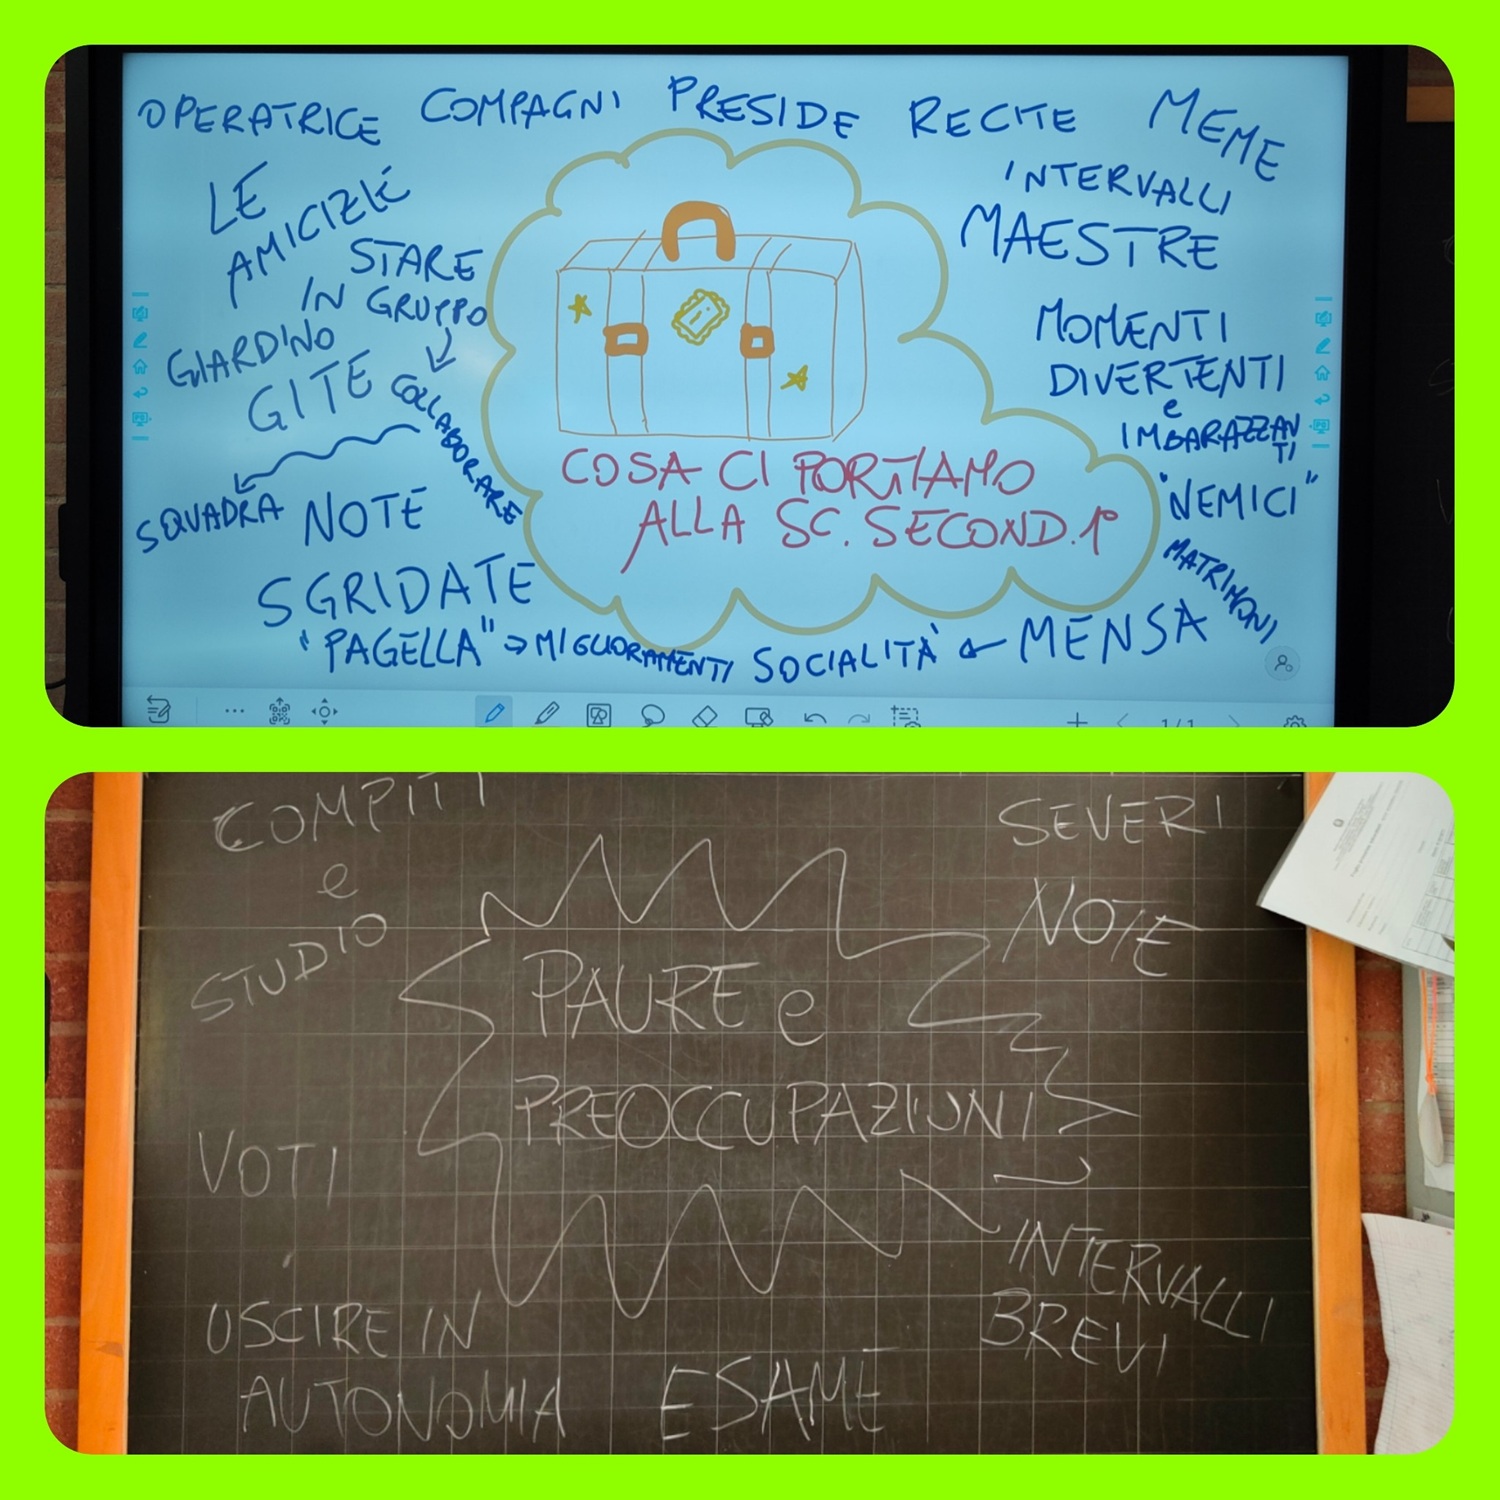 OPERATRICE COMPAGNI PRESIDE RECITE MEME
LE
AMICIZIE
STARE
IN GRUPPO
COLLABORARE
GIARDINO
GITE
SQUADRA
NOTE
SGRIDATE
"PAGELLA" → MIGLIORAMENTI
SOCIALITÀ ← MENSA
INTERVALLI
MAESTRE
MOMENTI
DIVERTENTI
e
IMBARAZZAN
TI
"NEMICI"
MATRIMONI
COSA CI PORTIAMO
ALLA SC. SECOND. 1°
1/1
COMPITI
e
STUDIO
VOTI
USCIRE IN
AUTONOMIA
ESAME
PAURE e
PREOCCUPAZIONI
SEVERI
NOTE
INTERVALLI
BREVI